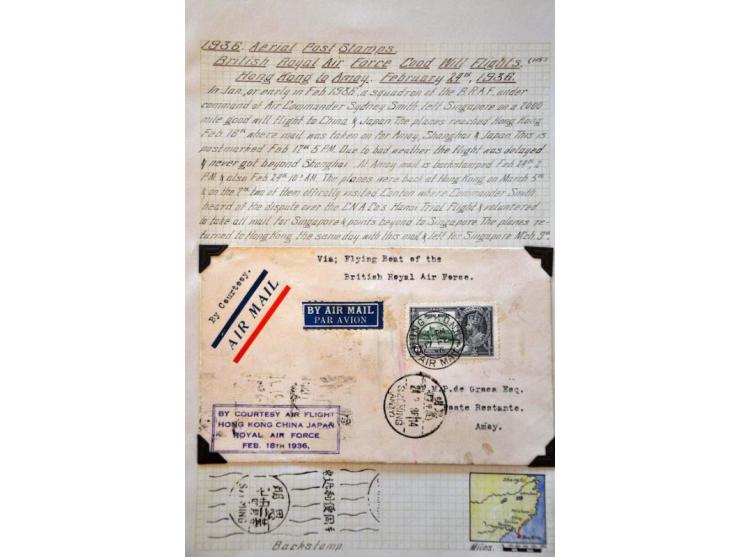 1936. Aerial Post Stamps.
British Royal Air Force Good Will Flights.
Hong Kong to Amoy. February 24th, 1936.
In Jan. or early in Feb 1936, a squadron of the B.R.A.F. under
command of Air Commander Sydney Smith left Singapore on a 7000
mile good will flight to China & Japan The planes reached Hong Kong
Feb 16th where mail was taken on for Amoy, Shanghai & Japan This is
postmarked Feb 17th 5 P.M. Due to bad weather the flight was delayed
& never got beyond Shanghai. At Amoy mail is backstamped Feb 24th 2
P.M. & also Feb 24th 10 A.M. The planes were back at Hong Kong on March 5th
& on the 7th two of them offically visited Canton where Commander Smith
heard of the dispute over the C.N.A.Co's Hanoi Trial Flight & volunteered
to take all mail for Singapore & points beyond to Singapore The planes re-
turned to Hong Kong the same day with this mail & left for Singapore Mch. 9th.
Via; Flying Boat of the
British Royal Air Force.
By Courtesy.
AIR MAIL
BY AIR MAIL
PAR AVION
HONG KONG
AIR MAIL
M.P.de Graca Esq.
Poste Restante.
Amoy.
AMOY
BY COURTESY AIR FLIGHT
HONG KONG CHINA JAPAN
ROYAL AIR FORCE
FEB. 18TH 1936.
Backstamp.
Shanghai
Miles.